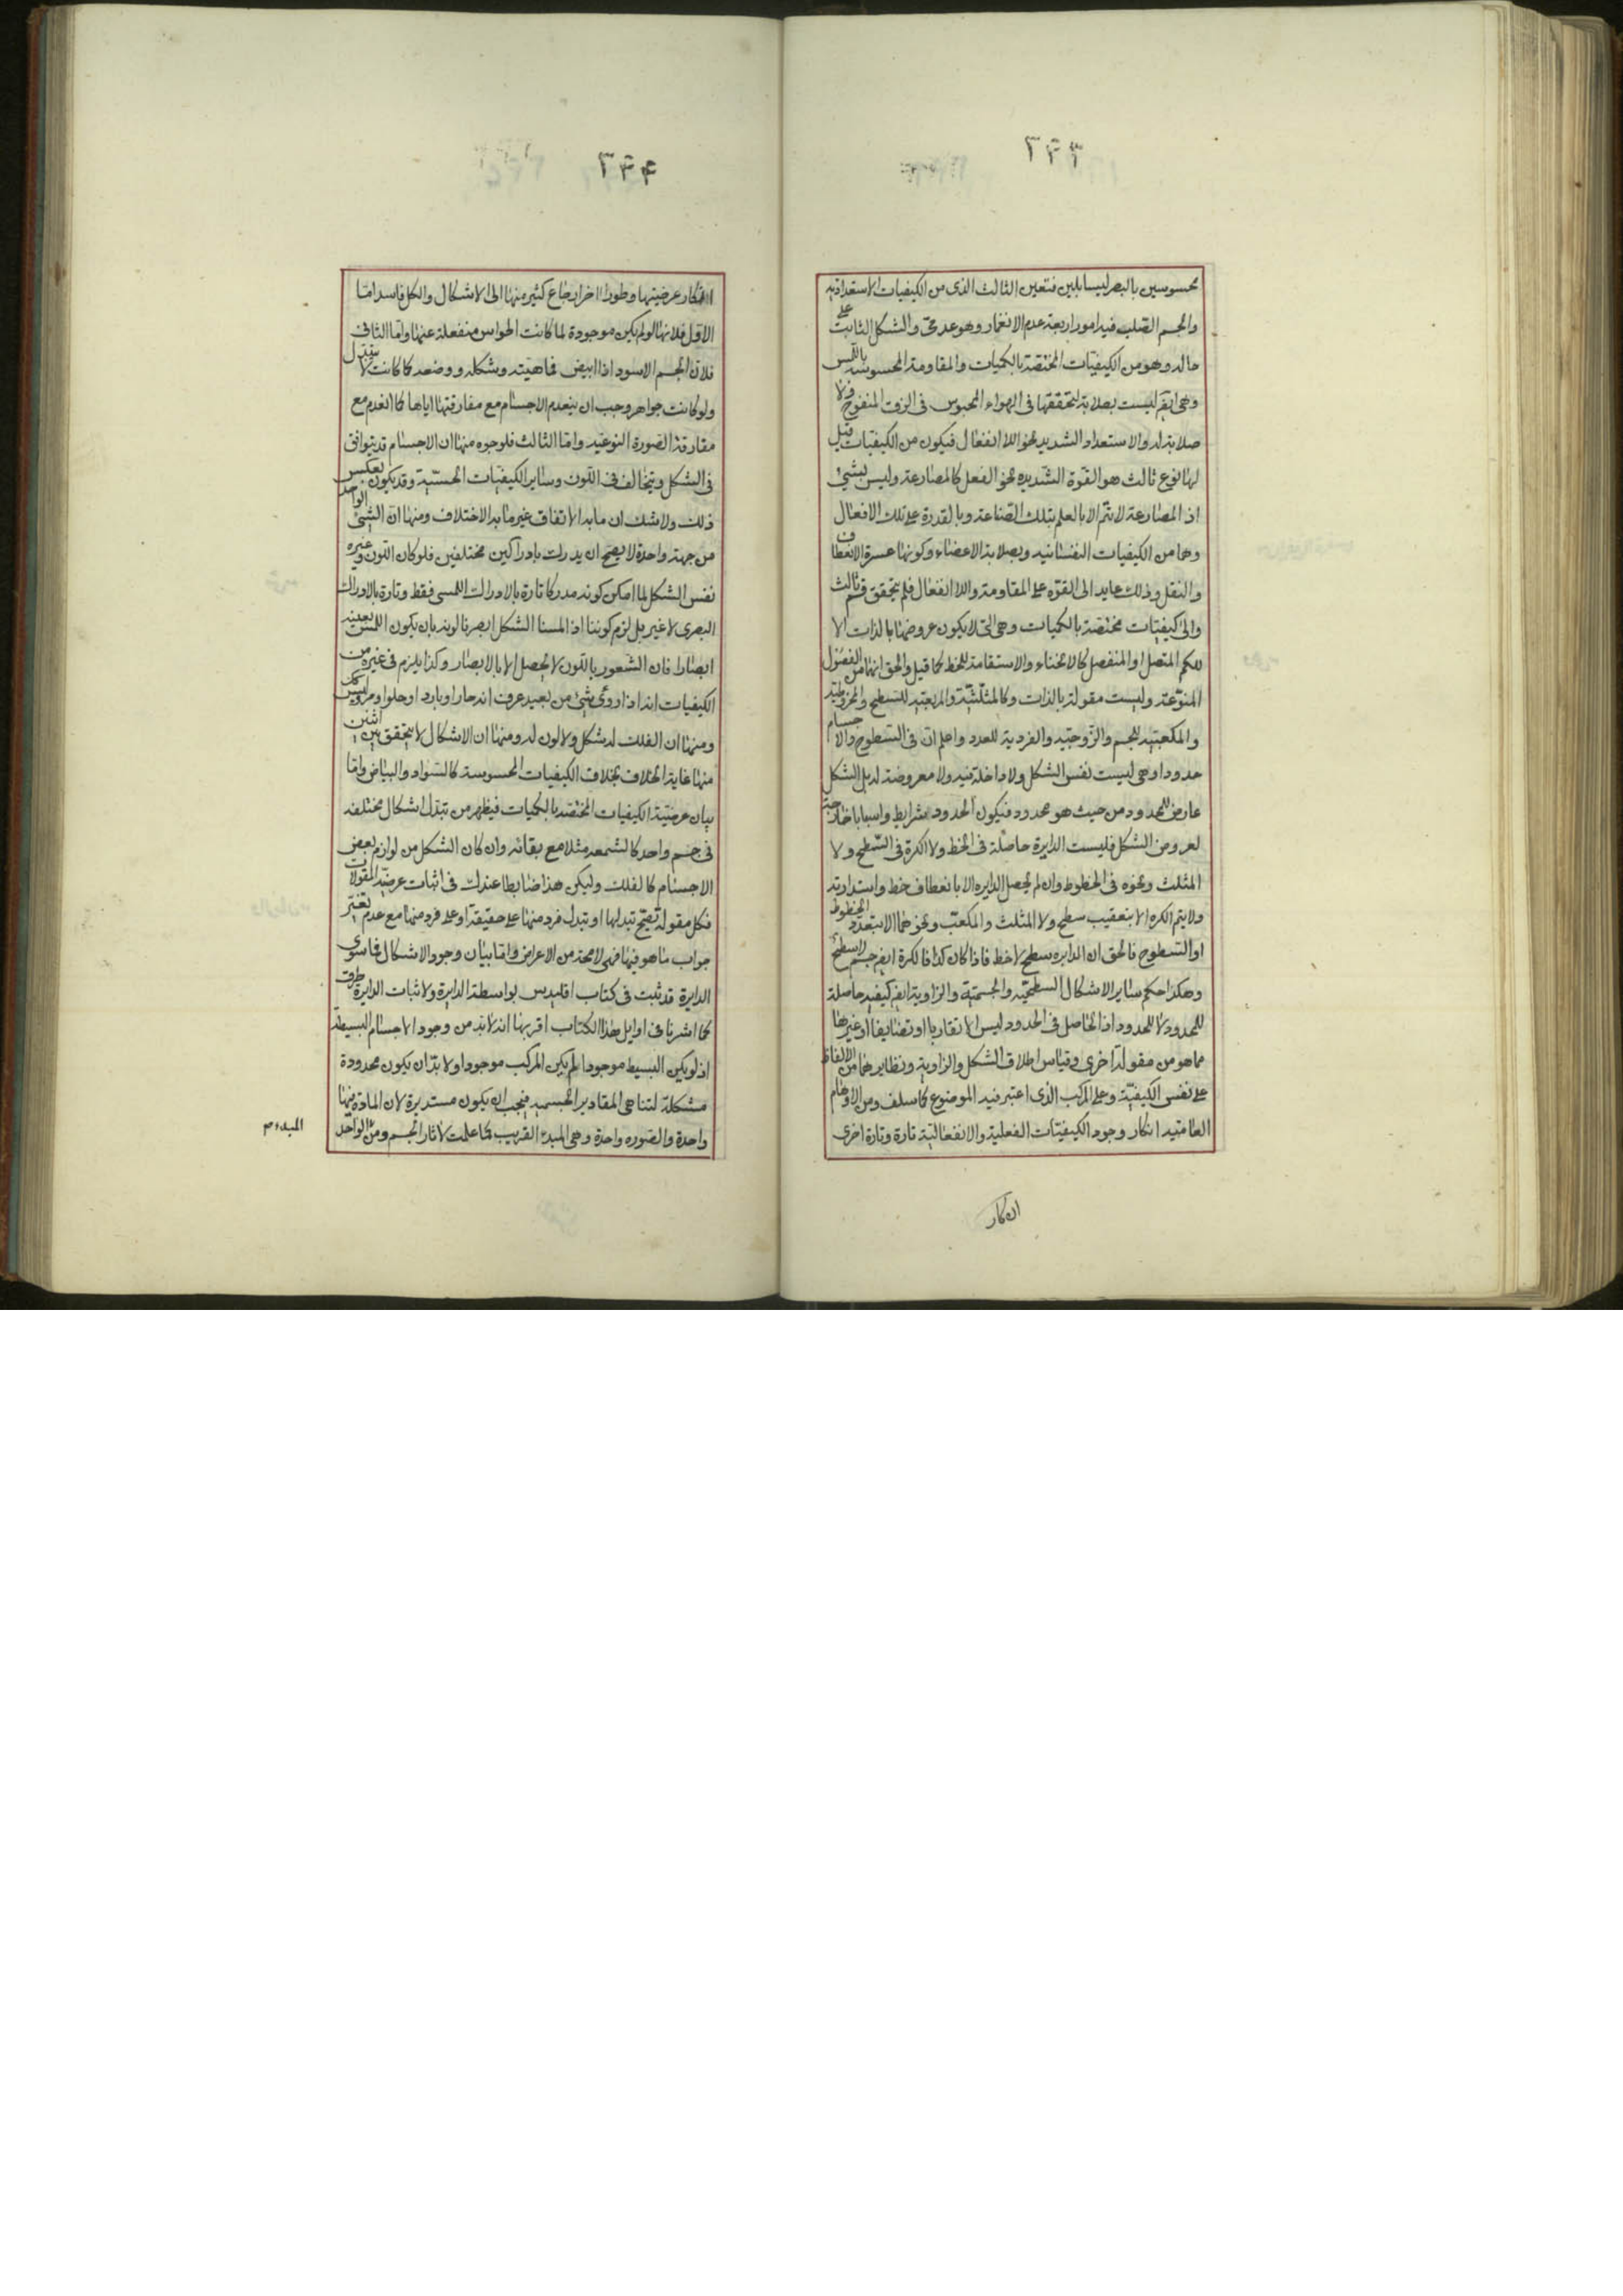 ٣٤٣
محسوسين بالبصر ليسا بلين فتعين الثالث الذى من الكيفيات الاستعدادية
والجسم الصلب فيه امور اربعة عدم الانغمار وهو عدمى والشكل الثابت على
حاله وهو من الكيفيات المختصة بالكميات والمقاومة المحسوسة باللمس
وهى ايض ليست بصلابة لتحققها فى الهواء المحبوس فى الزق المنفوخ ولا
صلابة له والاستعداد الشديد نحو اللا انفعال فيكون من الكيفيات قيل
لها نوع ثالث هو القوة الشديده نحو الفعل كالمصارعة وليس بشئ
اذ المصارعة لا تتم الا بالعلم بتلك الصناعة وبالقدرة على تلك الافعال
وهما من الكيفيات النفسانيه وبصلابة الاعضاء وكونها عسرة الانعطاف
والنقل وذلك عايد الى القوة على المقاومة واللا انفعال فلم يتحقق قسم ثالث
والى كيفيات مختصة بالكميات وهى التى لا يكون عروضها بالذات الا
للكم المتصل او المنفصل كالانحناء والاستقامة للخط كما قيل والحق انهما من الفصول
المنوعة وليست مقولة بالذات وكالمثلثية والمربعية للسطح والمخروطية
والمكعبية للجسم والزوجية والفردية للعدد واعلم ان فى السطوح والاجسام
حدودا وهى ليست نفس الشكل ولا داخلة فيه ولا معروضة له بل الشكل
عارض للمحدود من حيث هو محدود فيكون الحدود شرايط واسبابا خارجية
لعروض الشكل فليست الدايرة حاصلة فى الخط ولا الكرة فى السطح ولا
المثلث ونحوه فى الخطوط وان لم يحصل الدايره الا بانعطاف خط واستدارته
ولا يتم الكره الا بتعقيب سطح ولا المثلث والمكعب ونحوهما الا بتعدد الخطوط
او السطوح فالحق ان الدايره سطح لا خط فاذا كان كذا فالكرة ايض جسم لا سطح
وهكذا حكم ساير الاشكال السطحية والجسمية والزاوية ايض كيفية حاصلة
للمحدود لا للحدود اذ الحاصل فى الحدود ليس الا تقاربا او تضايفا او غيرها
مما هو من مقولة اخرى وقياس اطلاق الشكل والزاوية ونظايرهما من الالفاظ
على نفس الكيفية وعلى المركب الذى اعتبر فيه الموضوع كما سلف ومن الاوهام
العامية انكار وجود الكيفيات الفعلية والانفعالية تارة وتارة اخرى
انكار
٣٤٤
انكار عرضيتها وطورا اخر ارجاع كثير منها الى الاشكال والكل فاسد اما
الاول فلانها لو لم يكن موجودة لما كانت الحواس منفعلة عنها واما الثانى
فلان الجسم الاسود اذا ابيض فماهيته وشكله ووضعه كما كانت لا يتبدل
ولو كانت جواهر وجب ان ينعدم الاجسام مع مفارقتها اياها كما انعدم مع
مفارقة الصورة النوعيه واما الثالث فلوجوه منها ان الاجسام قد يتوافق
فى الشكل ويتخالف فى اللون وساير الكيفيات الحسية وقد يكون بعكس
ذلك ولا شك ان ما به الاتفاق غير ما به الاختلاف ومنها ان الشئ الواحد
من جهة واحدة لا يصح ان يدرك بادراكين مختلفين فلو كان اللون وغيره
نفس الشكل لما امكن كونه مدركا تارة بالادراك اللمسى فقط وتارة بالادراك
البصرى لا غير بل لزم كوننا اذا لمسنا الشكل ابصرنا لونه بان يكون اللمس بعينه
ابصارا فان الشعور باللون لا يحصل الا بالابصار وكذا يلزم فى غيره من
الكيفيات انه اذا روئ شئ من بعيد عرف انه حار او بارد او حلو او مر وليس كك
ومنها ان الفلك له شكل ولا لون له ومنها ان الاشكال لا يتحقق بين اثنين
منها غاية الخلاف بخلاف الكيفيات المحسوسة كالسواد والبياض واما
بيان عرضية الكيفيات المختصه بالكميات فيظهر من تبدل اشكال مختلفه
فى جسم واحد كالشمعه مثلا مع بقائه وان كان الشكل من لوازم بعض
الاجسام كالفلك وليكن هذا ضابطا عندك فى اثبات عرضية المقولات
فكل مقولة تصح تبدلها او تبدل فرد منها على حقيقة او على فرد منها مع عدم تغير
جواب ما هو فيها فهى لا محة من الاعراض واما بيان وجود الاشكال فما سوى
الدايرة قد ثبت فى كتاب اقليدس بواسطة الدايرة ولاثبات الدايرة طرق
كما اشرنا فى اوايل هذا الكتاب اقربها انه لا بد من وجود الاجسام البسيطة
اذ لو يكن البسيط موجودا لم يكن المركب موجودا ولا بد ان يكون محدودة
مشكلة لتناهى المقادير الجسميه فيجب ان يكون مستديرة لان المادة فيها
واحدة والصوره واحدة وهى المبدء القريب كما علمت لاثار الجسم ومن الواحد
المبدء م